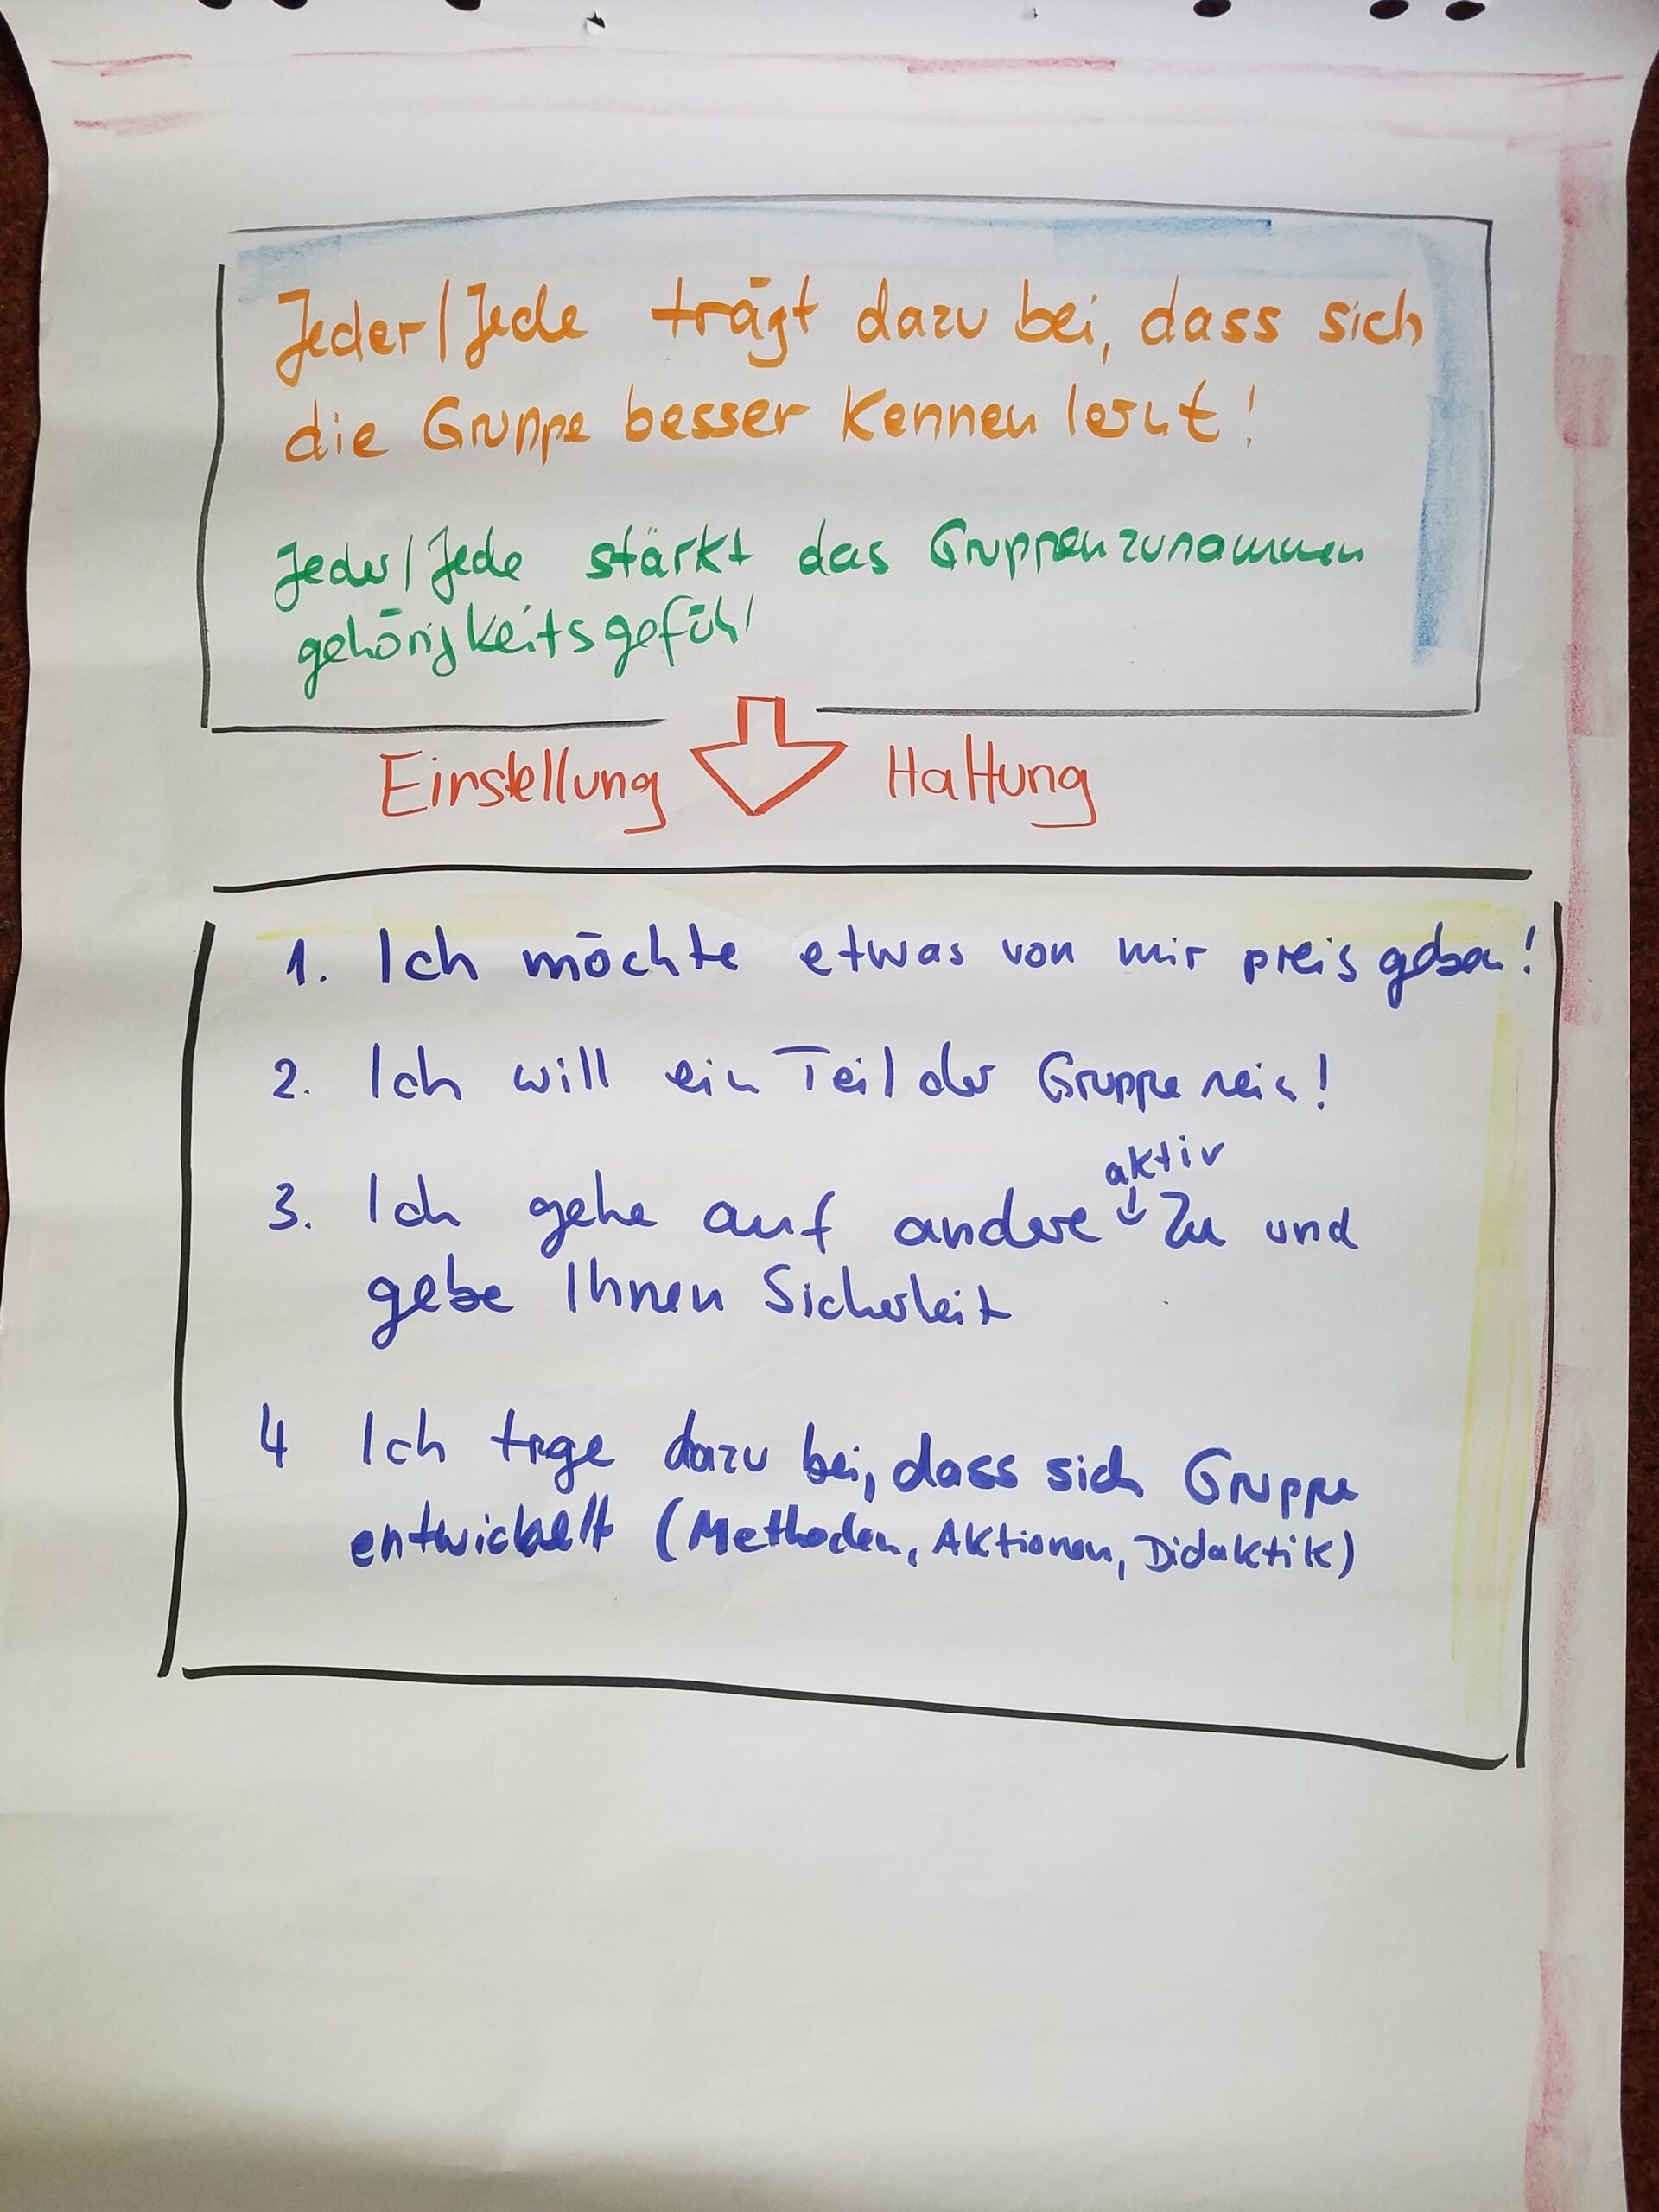 Jeder/Jede trägt dazu bei, dass sich
die Gruppe besser Kennen lernt!
Jeder/Jede stärkt das Gruppenzusammen
gehörigkeitsgefühl
Einstellung Haltung
1. Ich möchte etwas von mir preis geben!
2. Ich will ein Teil der Gruppe sein!
aktiv
3. Ich gehe auf andere ↓ Zu und
gebe Ihnen Sicherheit
4 Ich trge dazu bei, dass sich Gruppe
entwickelt (Methoden, Aktionen, Didaktik)